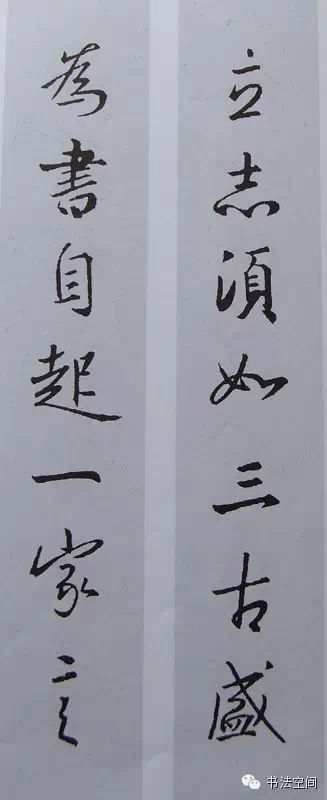 立志須如三古盛
為書自起一家言
书法空间